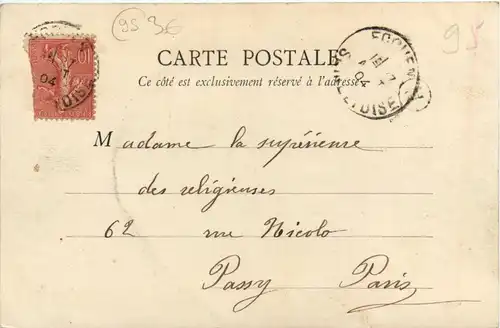 95 36
95
CARTE POSTALE
Ce côté est exclusivement réservé à l'adresse
10
04
OISE
04
OISE
Madame la supérieure
des religieuses
62 rue Nicolo
Passy Paris